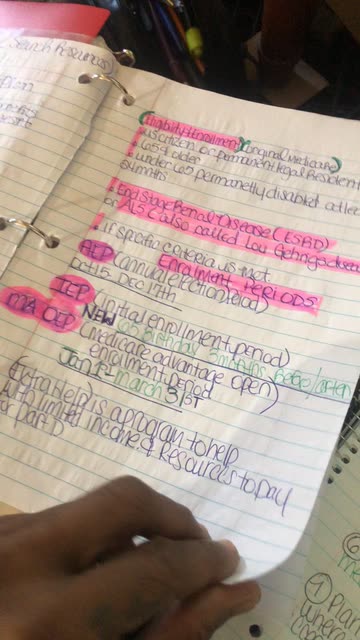 Search Resources
Plan
(Eligibility & Enrollment) (Original Medicare)
US citizen or permanent legal Resident
65 & older
under 65 permanetly disabled after
24 mnths
End Stage Renal Disease (ESRD)
or ALS (also called Lou
if specific criteria is met
Enrollment Periods
AEP (annual election period)
Oct 15 Dec 7th
IEP (initial enrollment period)
NEW 65 Birthday 3 months before/after
MA OEP (medicare advantage open
enrollment period)
Jan 1 - march 31st
(Extra help) is a program to help
limited income & Resources to pay
for part D